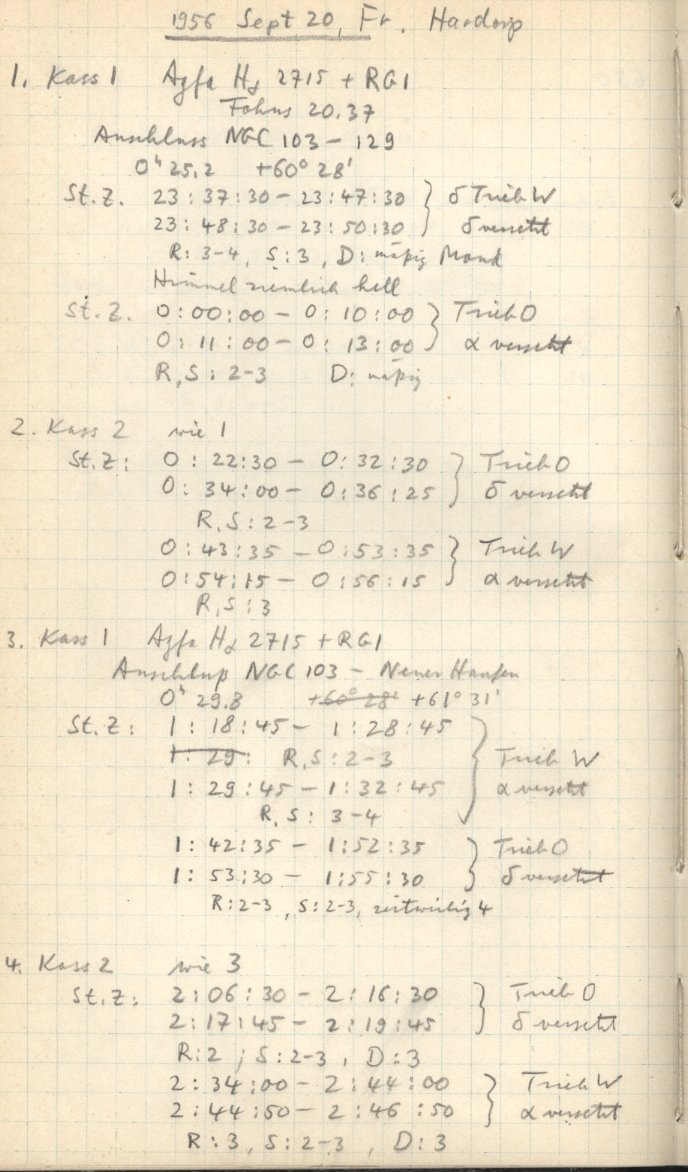 1956 Sept 20, Fr. Hardorp
1. Kass 1 Agfa Hα 2715 + RG1
Fokus 20.37
Anschluss NGC 103 – 129
0ʰ 25.2 +60° 28'
St.Z. 23:37:30 – 23:47:30 } δ Trieb W
23:48:30 – 23:50:30 } δ versetzt
R: 3-4, S: 3, D: mäßig Mond
Himmel ziemlich hell
St.Z. 0:00:00 – 0:10:00 } Trieb O
0:11:00 – 0:13:00 } α versetzt
R,S: 2-3 D: mäßig
2. Kass 2 wie 1
St.Z: 0:22:30 – 0:32:30 } Trieb O
0:34:00 – 0:36:25 } δ versetzt
R,S: 2-3
0:43:35 – 0:53:35 } Trieb W
0:54:15 – 0:56:15 } α versetzt
R,S: 3
3. Kass 1 Agfa Hα 2715 + RG1
Anschluß NGC 103 – Neuer Haufen
0ʰ 29.8 +60° 28' +61° 31'
St.Z: 1:18:45 – 1:28:45
1:29: R,S: 2-3 } Trieb W
1:29:45 – 1:32:45 } α versetzt
R,S: 3-4
1:42:35 – 1:52:35 } Trieb O
1:53:30 – 1:55:30 } δ versetzt
R: 2-3, S: 2-3, zeitweilig 4
4. Kass 2 wie 3
St.Z: 2:06:30 – 2:16:30 } Trieb O
2:17:45 – 2:19:45 } δ versetzt
R: 2; S: 2-3, D: 3
2:34:00 – 2:44:00 } Trieb W
2:44:50 – 2:46:50 } α versetzt
R: 3, S: 2-3, D: 3